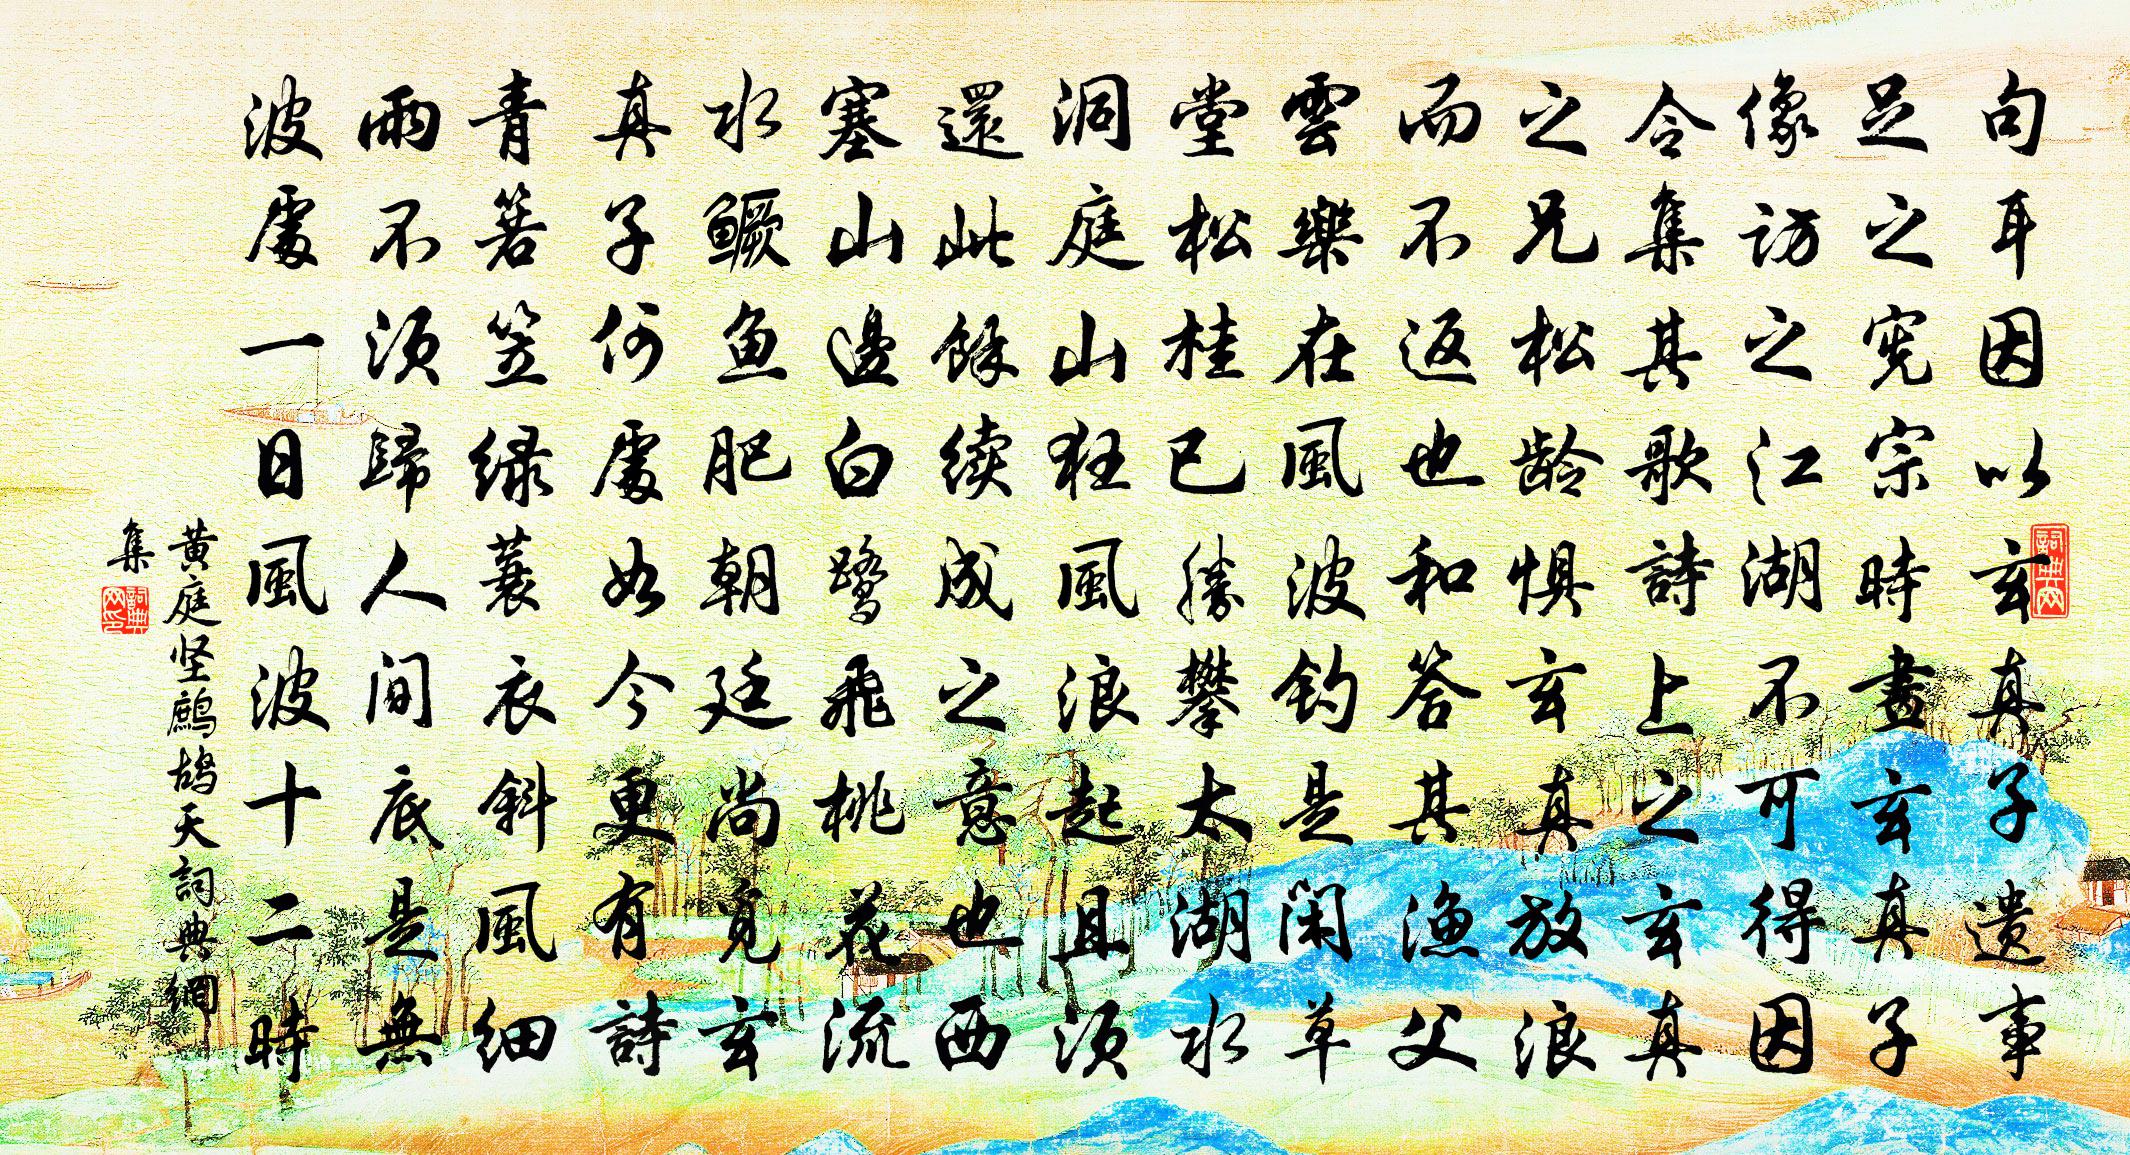 句耳因以玄真子遗事
足之宪宗時畫玄真子
像访之江湖不可得因
令集其歌詩上之玄真
之兄松龄惧玄真放浪
而不返也和答其渔父
雲樂在風波钓是闲草
堂松桂已勝攀太湖水
洞庭山狂風浪起且须
還此餘续成之意也西
塞山邊白鹭飛桃花流
水鳜鱼肥朝廷尚覓玄
真子何處如今更有詩
青箬笠绿蓑衣斜風细
雨不须歸人间底是無
波處一日風波十二時
黄庭坚鹧鸪天詞典網
集
詞典网
詞典网印